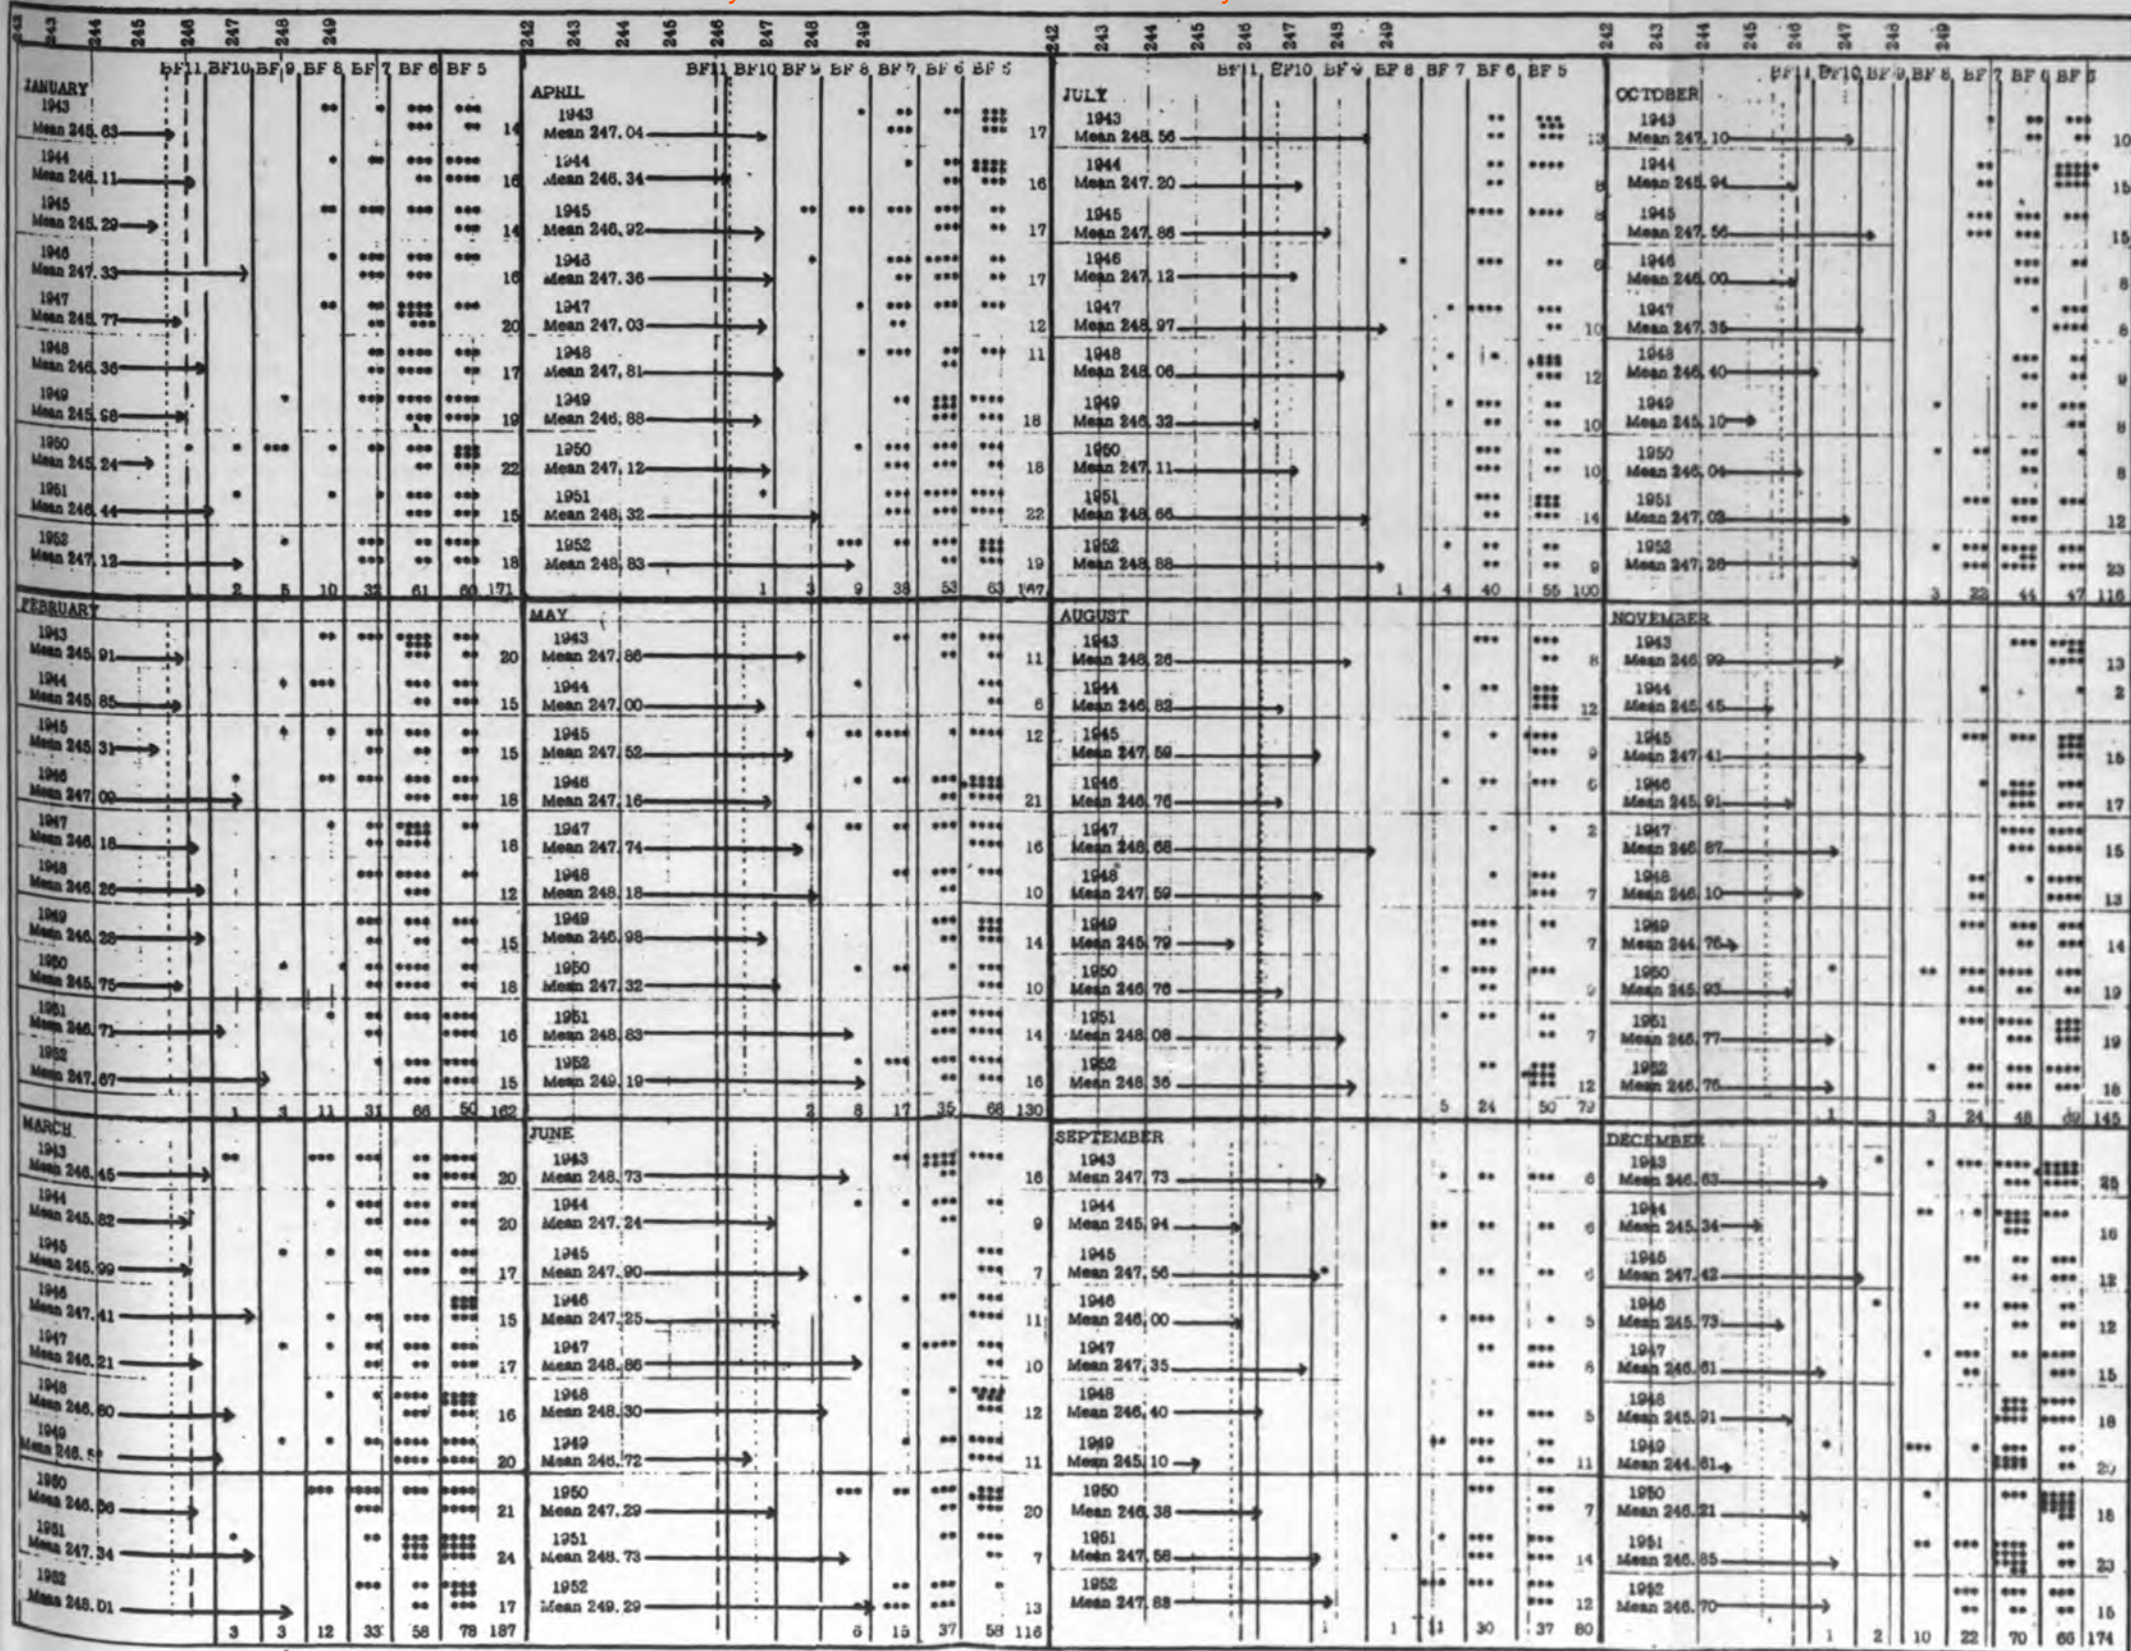 242 243 244 245 246 247 248 249 242 243 244 245 246 247 248 249 242 243 244 245 246 247 248 249 242 243 244 245 246 247 248 249
BF11 BF10 BF 9 BF 8 BF 7 BF 6 BF 5
JANUARY
1943
Mean 245.63 14
1944
Mean 246.11 16
1945
Mean 245.29 14
1946
Mean 247.33 16
1947
Mean 245.77 20
1948
Mean 246.36 17
1949
Mean 245.98 19
1950
Mean 245.24 22
1951
Mean 246.44 15
1952
Mean 247.12 18
1 2 5 10 32 61 60 171
FEBRUARY
1943
Mean 245.91 20
1944
Mean 245.85 15
1945
Mean 245.31 15
1946
Mean 247.09 18
1947
Mean 246.18 18
1948
Mean 246.26 12
1949
Mean 246.28 15
1950
Mean 245.75 18
1951
Mean 246.71 16
1952
Mean 247.67 15
1 3 11 31 66 50 162
MARCH
1943
Mean 246.45 20
1944
Mean 245.82 20
1945
Mean 245.99 17
1946
Mean 247.41 15
1947
Mean 246.21 17
1948
Mean 246.80 16
1949
Mean 20
1950
Mean 246.06 21
1951
Mean 247.34 24
1952
Mean 248.01 17
3 3 12 33 58 78 187
BF11 BF10 BF 9 BF 8 BF 7 BF 6 BF 5
APRIL
1943
Mean 247.04 17
1944
Mean 246.34 16
1945
Mean 246.92 17
1946
Mean 247.36 17
1947
Mean 247.03 12
1948 11
Mean 247.81
1949
Mean 246.88 18
1950
Mean 247.12 18
1951
Mean 248.32 22
1952
Mean 248.83 19
1 3 9 38 53 63 167
MAY
1943
Mean 247.86 11
1944
Mean 247.00 6
1945 12
Mean 247.52
1946
Mean 247.16 21
1947
Mean 247.74 16
1948
Mean 248.18 10
1949
Mean 246.98 14
1950
Mean 247.32 10
1951
Mean 248.83 14
1952
Mean 249.19 16
8 17 35 68 130
JUNE
1943
Mean 248.73 16
1944
Mean 247.24 9
1945
Mean 247.90 7
1946
Mean 247.25 11
1947
Mean 248.86 10
1948
Mean 248.30 12
1949
Mean 246.72 11
1950
Mean 247.29 20
1951
Mean 248.73 7
1952
Mean 249.29 13
6 15 37 58 116
BF11 BF10 BF 9 BF 8 BF 7 BF 6 BF 5
JULY
1943
Mean 248.56 13
1944
Mean 247.20 8
1945 8
Mean 247.86
1946 6
Mean 247.12
1947
Mean 248.97 10
1948
Mean 248.06 12
1949
Mean 246.32 10
1950
Mean 247.11 10
1951
Mean 248.66 14
1952
Mean 248.88 9
1 4 40 55 100
AUGUST
1943
Mean 248.26 8
1944
Mean 246.82 12
1945
Mean 247.59 9
1946 6
Mean 246.76
1947 2
Mean 248.68
1948
Mean 247.59 7
1949
Mean 245.79 7
1950
Mean 246.76 9
1951
Mean 248.08 7
1952
Mean 248.36 12
5 24 50 79
SEPTEMBER
1943
Mean 247.73 6
1944
Mean 245.94 6
1945
Mean 247.56 6
1946
Mean 246.00 5
1947
Mean 247.35 6
1948
Mean 246.40 5
1949
Mean 245.10 11
1950
Mean 246.38 7
1951
Mean 247.58 14
1952
Mean 247.88 12
1 1 11 30 37 80
BF11 BF10 BF 9 BF 8 BF 7 BF 6 BF 5
OCTOBER
1943
Mean 247.10 10
1944
Mean 245.94 15
1945
Mean 247.56 15
1946
Mean 246.00 8
1947
Mean 247.35 8
1948
Mean 246.40 9
1949
Mean 245.10 8
1950
Mean 246.04 8
1951
Mean 247.02 12
1952
Mean 247.26 23
3 22 44 47 116
NOVEMBER
1943
Mean 246.99 13
1944 2
Mean 245.45
1945
Mean 247.41 15
1946
Mean 245.91 17
1947
Mean 246.87 15
1948
Mean 246.10 13
1949
Mean 244.76 14
1950
Mean 245.93 19
1951
Mean 246.77 19
1952
Mean 246.76 18
1 3 24 48 69 145
DECEMBER
1943
Mean 246.63 25
1944
Mean 245.34 16
1945
Mean 247.42 12
1946
Mean 245.73 12
1947
Mean 246.61 15
1948
Mean 245.91 18
1949
Mean 244.61 20
1950
Mean 246.21 18
1951
Mean 246.85 23
1952
Mean 246.70 15
1 2 10 22 70 66 174